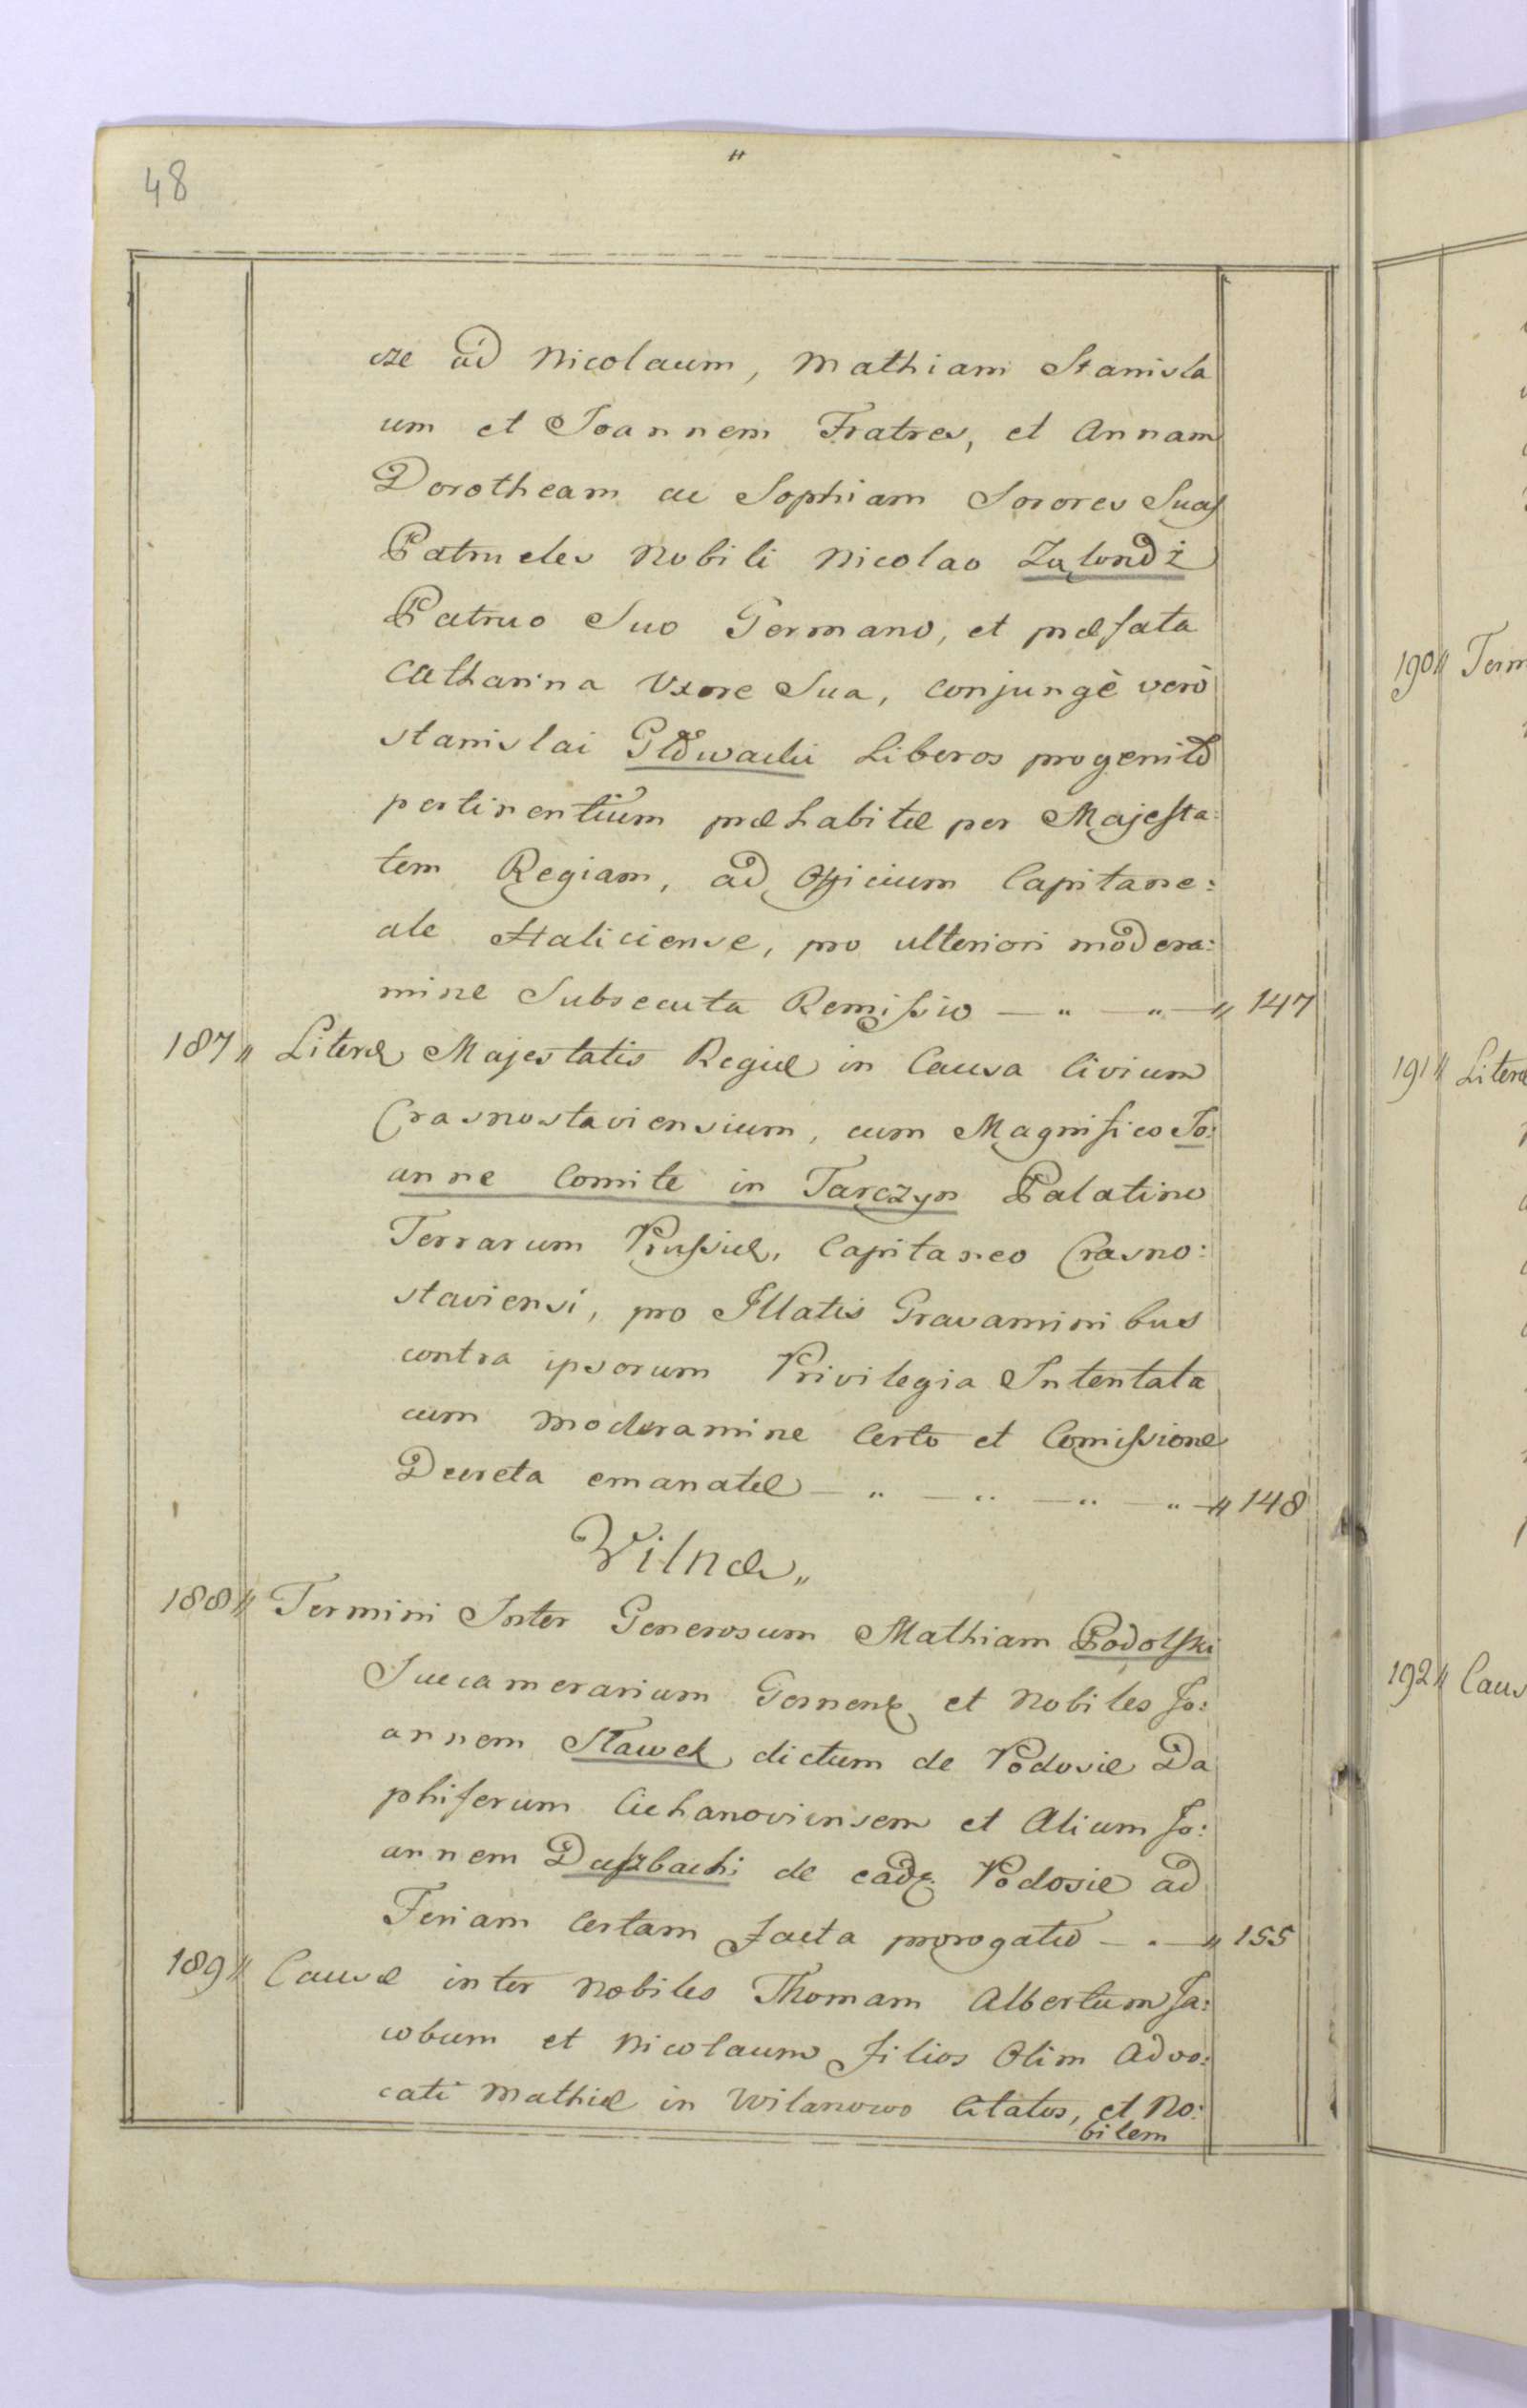 48
"
cze ad Nicolaum, Mathiam Stanisla
um et Joannem Fratres, et Annam
Dorotheam ac Sophiam Sorores Suas
Patrueles Nobili Nicolao Zalondz
Patruo Suo Germano, et præfata
Catharina Uxore Sua, conjungè verò
Stanislai Głowacki Liberos progenitos
pertinentium præhabitæ per Majesta:
tem Regiam, ad Officium Capitane:
ale Haliciense, pro ulteriori modera:
mine Subsecuta Remissio — " — " — " 147
187 " Literæ Majestatis Regiæ in Causa Civium
Crasnostaviensium, cum Magnifico Jo:
anne Comite in Tarczyn Palatino
Terrarum Russiæ, Capitaneo Crasno:
staviensi, pro Illatis Gravaminibus
contra ipsorum Privilegia Intentata
cum moderamine Certo et Comissione
Decreta emanatæ — " — " — " — " — " 148
Vilnæ "
188 " Termini Inter Generosum Mathiam Podolski
Succamerarium et Nobiles Jo:
annem Sławek dictum de Podosie Da
phiferum Ciechanoviensem et Alium Jo:
annem Daszbachi de eadę Podosie ad
Feriam certam facta prorogatio — " — " 155
189 " Causæ inter Nobiles Thomam Albertum Ja:
cobum et Nicolaum filios Olim Advo:
cati Mathiæ in Wilanowo Citatos, et No:
bilem
190 " Term
191 " Literæ
192 " Caus